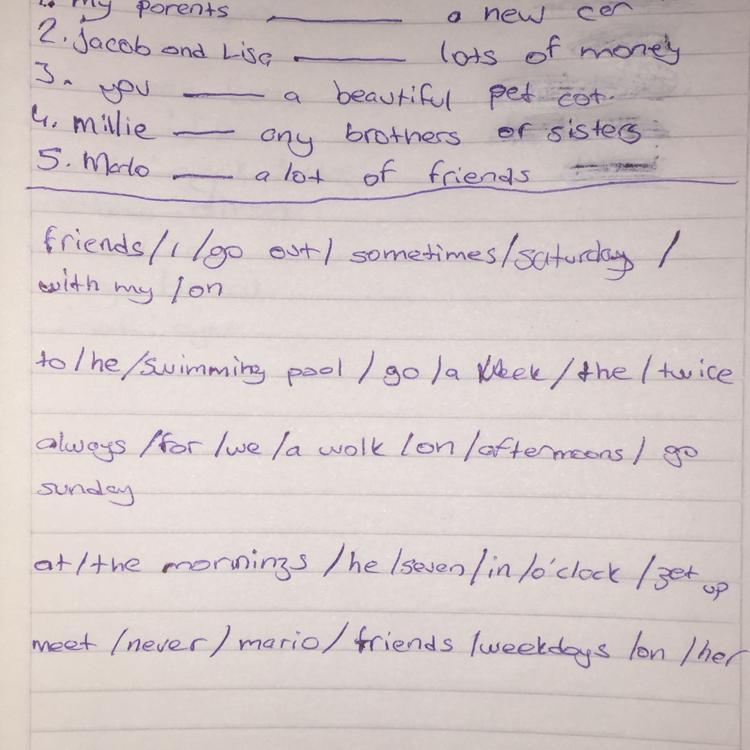 1. my parents ______ a new cer
2. Jacob and Lisa ______ lots of money
3. you ______ a beautiful pet cat.
4. Millie ______ any brothers or sisters
5. Mario ______ a lot of friends
friends / I / go out / sometimes / saturday /
with my / on
to / he / swimming pool / go / a week / the / twice
always / for / we / a walk / on / afternoons / go
sunday
at / the mornings / he / seven / in / o'clock / get up
meet / never / mario / friends / weekdays / on / her